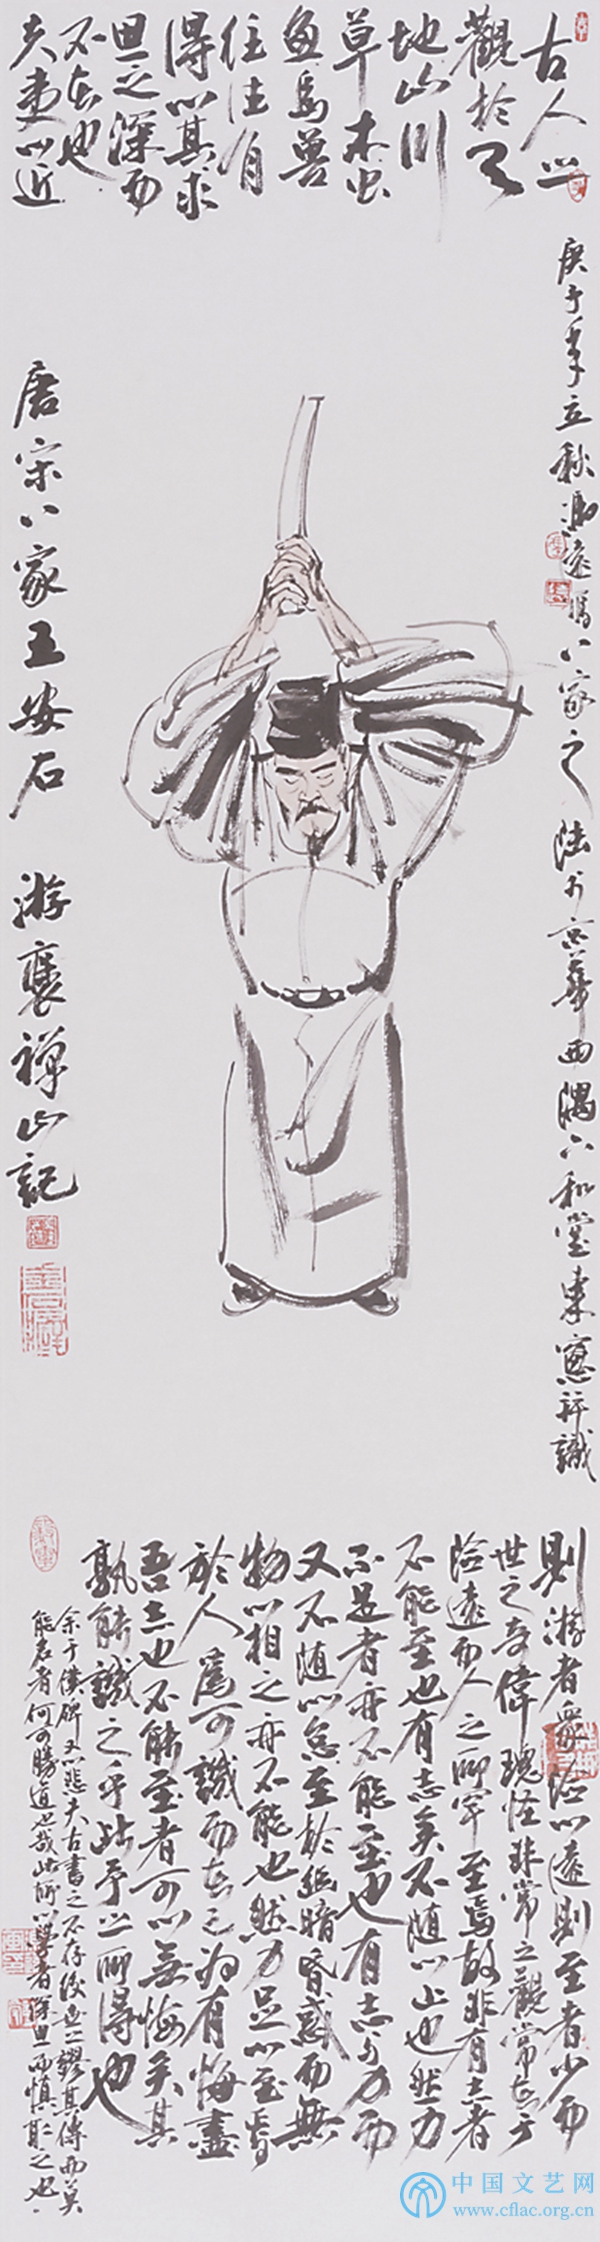 古人之
觀於天
地山川
草木虫
魚鳥獸
往往有
得以其求
思之深而
不在也
夫夷以近
庚子年立秋馮遠寫八家之陆於京華西隅六和堂東窗并識
唐宋八家王安石 游褒禅山記
則游者衆險以遠則至者少而
世之奇偉瑰怪非常之觀常在于
險遠而人之所罕至焉故非有志者
不能至也有志矣不随以止也然力
不足者亦不能至也有志与力而
又不随以怠至於幽暗昏惑而無
物以相之亦不能也然力足以至焉
於人爲可譏而在己为有悔盡
吾志也不能至者可以無悔矣其
孰能譏之乎此予之所得也
余于僕碑又以悲夫古書之不存後世之謬其傳而莫
能名者何可勝道也哉此所以學者深思而慎取之也
中国文艺网
www.cflac.org.cn